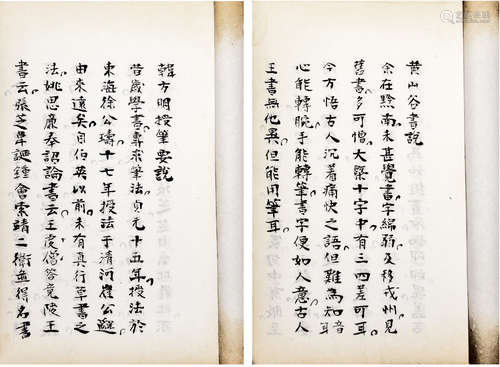 黄山谷書說
余在黔南未甚覺書字綿弱及移戎州見
舊書多可憎大槩十字中有三四差可耳
今方悟古人沉著痛快之語但難為知音
心能轉腕手能轉筆書字便如人意古人
王書無他異但能用筆耳
韓方明授筆要說
昔歲學書專求筆法貞元十五年授法於
東海徐公璹十七年授法于清河崔公邈
由來遠矣自伯英以前未有真行草書之
法姚思廉奉詔論書云王虔僧答竟陵王
書云張芝韋誕鍾會索靖二衛並得名書